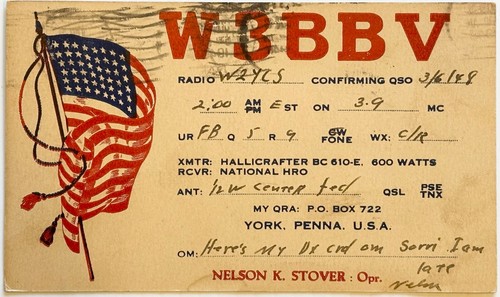 W3BBV
RADIO W2YLS CONFIRMING QSO 3/6/48
2:00 AM PM EST ON 3.9 MC
UR FB Q 5 R 9 CW FONE WX: C/R
XMTR: HALLICRAFTER BC 610-E, 600 WATTS
RCVR: NATIONAL HRO
ANT: 1/2 W center fed QSL PSE TNX
MY QRA: P.O. BOX 722
YORK, PENNA. U.S.A.
OM: Here's My Dx crd om Sorri I am
late
NELSON K. STOVER: Opr. Nelson